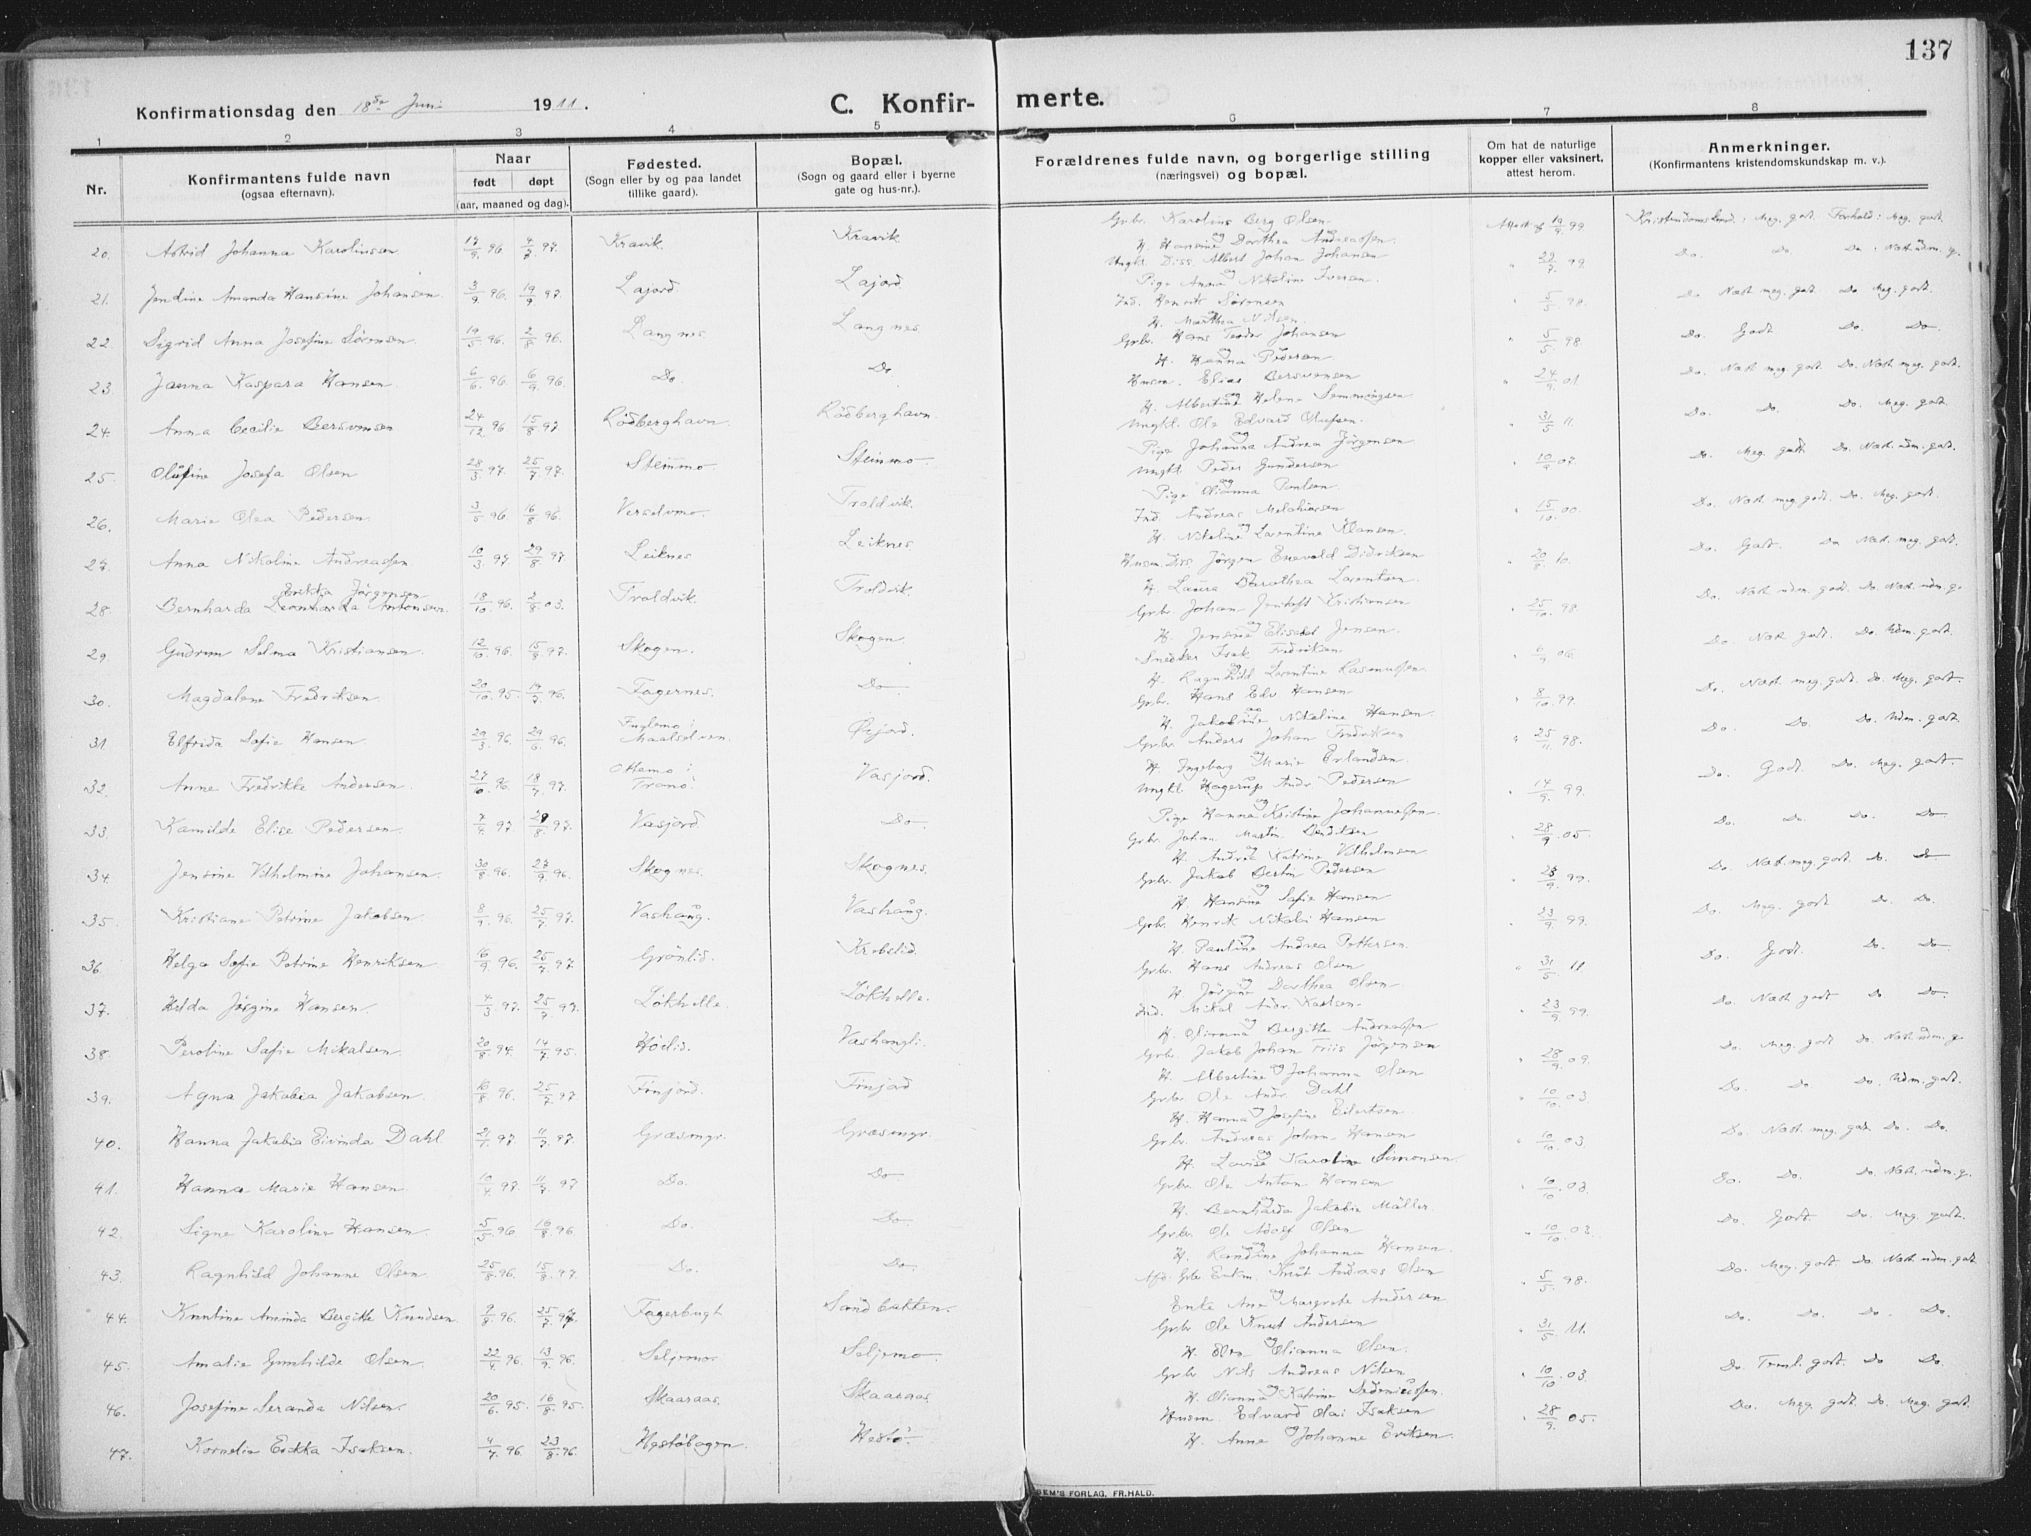 137
Konfirmationsdag den 18de Juni 1911.
C. Konfirmerte.
1 2 3 4 5 6 7 8
Nr.
Konfirmantens fulde navn
(ogsaa efternavn).
Naar
født døpt
(aar, maaned og dag).
Fødested.
(Sogn eller by og paa landet
tillike gaard).
Bopæl.
(Sogn og gaard eller i byerne
gate og hus-nr.).
Forældrenes fulde navn, og borgerlige stilling
(næringsvei) og bopæl.
Om hat de naturlige
kopper eller vaksinert,
attest herom.
Anmerkninger.
(Konfirmantens kristendomskundskap m. v.).
20. Astrid Johanna Karolinssen 17/9 96 4/7 97. Kravik Kravik Grbr. Karolius Berg Olsen
og H. Hansine Dorthea Andreassen Attest af 19/9 99 Kristendomskund.: Meg. godt. Forhold: Meg. godt
21. Jendine Amanda Hansine Johansen 3/9 96. 19/9 97. Lajord Lajord Ungkl. Diss. Albert Johan Johansen
og Pige Anna Nikoline Iversen. " 22/7 99 Do. Do Do: Nast. udm. g.
22. Sigrid Anna Josefine Sørensen 19/5 96. 2/8 96. Langnes Langnes Ind. Henrik Sørensen
og H. Marthea Nilsen. " 5/5 98. Do Nast meg. godt. Do Meg. godt.
23. Janna Kaspara Hansen. 6/6 96. 6/9 96. Do. Do. Grbr. Hans Teodor Johansen
og H. Hanna Pedersen " 5/5 98 Do. Godt Do. Do
24. Anna Cecilie Bersvensen 24/12 96 15/8 97 Rödberghavn. Rödberghavn. Husm. Elias Bersvensen
og H. Albertine Helene Semmingsen " 24/9 01. Do. Nast meg. godt Do. Nast meg. godt.
25. Olufine Josefa Olsen 28/3 97. 25/7 97. Steinmo. Steinmo. Ungkl. Ole Edvard Olufsen
og Pige Johanna Andrea Jörgensen " 31/5 11. Do. Do. Do. Meg. godt.
26. Marie Olea Pedersen. 3/5 96 16/8 96. Troldvik. Ungkl. Peder Gundersen
og Pige Olianna Paulsen. " 10/9 07. Do. Meg. godt Do. Nast. udm. godt.
27. Anna Nikoline Andreassen 10/3 97 29/8 97. Leiknes Leiknes Ind. Andreas
og H. Nikoline Laventine Klausen. " 15/10 00. Do. Nast meg. godt. Do. Meg. godt.
28. Bernharda Leonharda Antonsen. Erikka Jörgensen 18/10 96. 2/8 03. Troldvik. Troldvik. Husm. Diss. Jörgen Enevold Didriksen
og H. Laura Dorothea Lorentsen. " 20/8 10. Do. Godt. Do Nast. meg. godt.
29. Gudrun Selma Kristiansen. 12/10 96. 15/8 97. Skogen. Skogen. Grbr. Johan Jentoft Kristiansen
og H. Jensine Elisabet Jensen. " 25/10 98. Do. Nast udm. godt. Do. Nast udm. g.
30. Magdalene Fredriksen. 20/10 95 19/7 96. Fagernes. Do Snedker Isak Fredriksen
og H. Ragnhild Laventine Rasmussen. " 6/9 06. Do. Nast godt. Do. Udm. godt.
31. Elfrida Sofie Hansen. 29/3 96. 29/6 96. Fuglemo i
Maalselven. Øijord. Grbr. Hans Edv Hansen
og H. Jakobine Nikoline Hansen. " 8/10 99. Do. Nast meg. godt. Do. Meg. godt
32. Anne Fredrikke Andersen. 27/10 96. 18/7 97. Ottemo i
Tranö. Vasjord. Grbr. Anders Johan Fredriksen
og H. Ingeborg Marie Erlandsen. " 25/11 98. Do. Do. Do. Udm. godt.
33. Kamilde Elise Pedersen. 7/9 97. 29/8 97. Vasjord. Do. Ungkl. Hagerup Andr. Pedersen
og Pige Hanna Kristine Johannessen. " 14/9 99. Do. Godt. Do. Meg. godt.
34. Jensine Vilhelmine Johansen. 30/8 96. 27/9 96. Skognes. Skognes. Grbr. Johan Martin Benditsen
og H. Andrea Katrine Vilhelmsen " 28/9 05. Do. Do. Do. Do
35. Kristiane Petrine Jakobsen. 8/9 96. 25/7 97. Vashaug. Vashaug. Grbr. Jakob Bertin Pedersen
og H. Hansine Sofie Hansen " 23/9 99. Do. Nast. meg. godt. Do. Do
36. Helga Sofie Petrine Henriksen 16/9 96. 25/7 97. Grönlid. Krobslid. Grbr. Henrik Nikolai Hansen
og H. Pauline Andrea Pettersen. " 23/9 99. Do. Meg. godt Do. Do.
37. Hilda Jörgine Hansen. 4/3 97. 25/7 97. Lökhelle. Lökhelle. Grbr. Hans Andreas Olsen
og H. Jörgine Dorthea Olsen. " 31/5 11 Do. Godt. Do. Do
38. Peroline Sofie Mikalsen. 20/8 94. 14/7 95. Höelid. Vashaugli. Ind. Mikal Andr. Karlsen.
og H. Olianna Bergitte Andreassen " 23/9 99. Do. Nast godt Do Do.
39. Agna Jakobia Jakobsen. 16/8 96. 25/7 97 Finjord. Finjord Grbr. Jakob Johan Friis Jörgensen
og H. Albertine Johanna Olsen " 28/9 09. Do. Meg. godt Do. Nast udm. g.
40. Hanna Jakobia Eivinda Dahl 21/1 97. 11/7 97. Græsmyr. Græsmyr. Grbr. Ole Andr. Dahl
og H. Hanna Josefine Eilertsen. " 10/10 03 Do. Do Do. Udm. godt.
41. Hanna Marie Hansen 10/4 97. 11/7 97 Do. Do Grbr. Andreas Johan Hansen
og H. Lovise Karoline Simonsen. " 10/10 03. Do. Nast. meg. godt. Do. Do.
42. Signe Karoline Hansen. 5/5 96 16/8 96 Do. Do. Grbr. Ole Anton Hansen
og H. Bernharda Jakobia Müller " 10/10 03. Do. Do. Do. Nast udm. g.
43. Ragnhild Johanne Olsen 25/8 96. 15/8 97. Do. Do. Grbr. Ole Adolf Olsen
og H. Randine Johanna Hansen. " 10/10 03. Do. Godt. Do. Meg. godt.
44. Knutine Aminda Bergitte Knudsen. 9/8 96. 25/7 97. Fagerbugt Sandbakken. Afd. Grbr Enkm. Knut Andreas Olsen
og Enke Ane Margrete Andersen " 5/5 98. Do. Meg. godt Do. Nast udm. godt
45. Amalie Gunhilde Olsen. 22/4 96. 13/9 96. Seljemo Seljemo. Grbr Ole Knut Andersen
og H. Olianna Olsen. " 31/5 11. Do. Do. Do. Do.
46. Josefine Seranda Nilsen. 20/6 95. 16/8 95. Skaaraas. Skaaraas. Grbr Nils Andreas Nilsen
og H. Olianna Katrine " 10/10 03. Do. Teml. godt. Do Do.
47. Kornelia Erikka Isaksen. 4/7 96. 23/8 96. Hestöbogen. Hestö. Husm. Edvard Olai Isaksen
og H. Anne Johanne Eriksen. " 28/9 05. Do. Meg. godt Do. Meg. godt.
SEM'S FORLAG, FR. HALD.